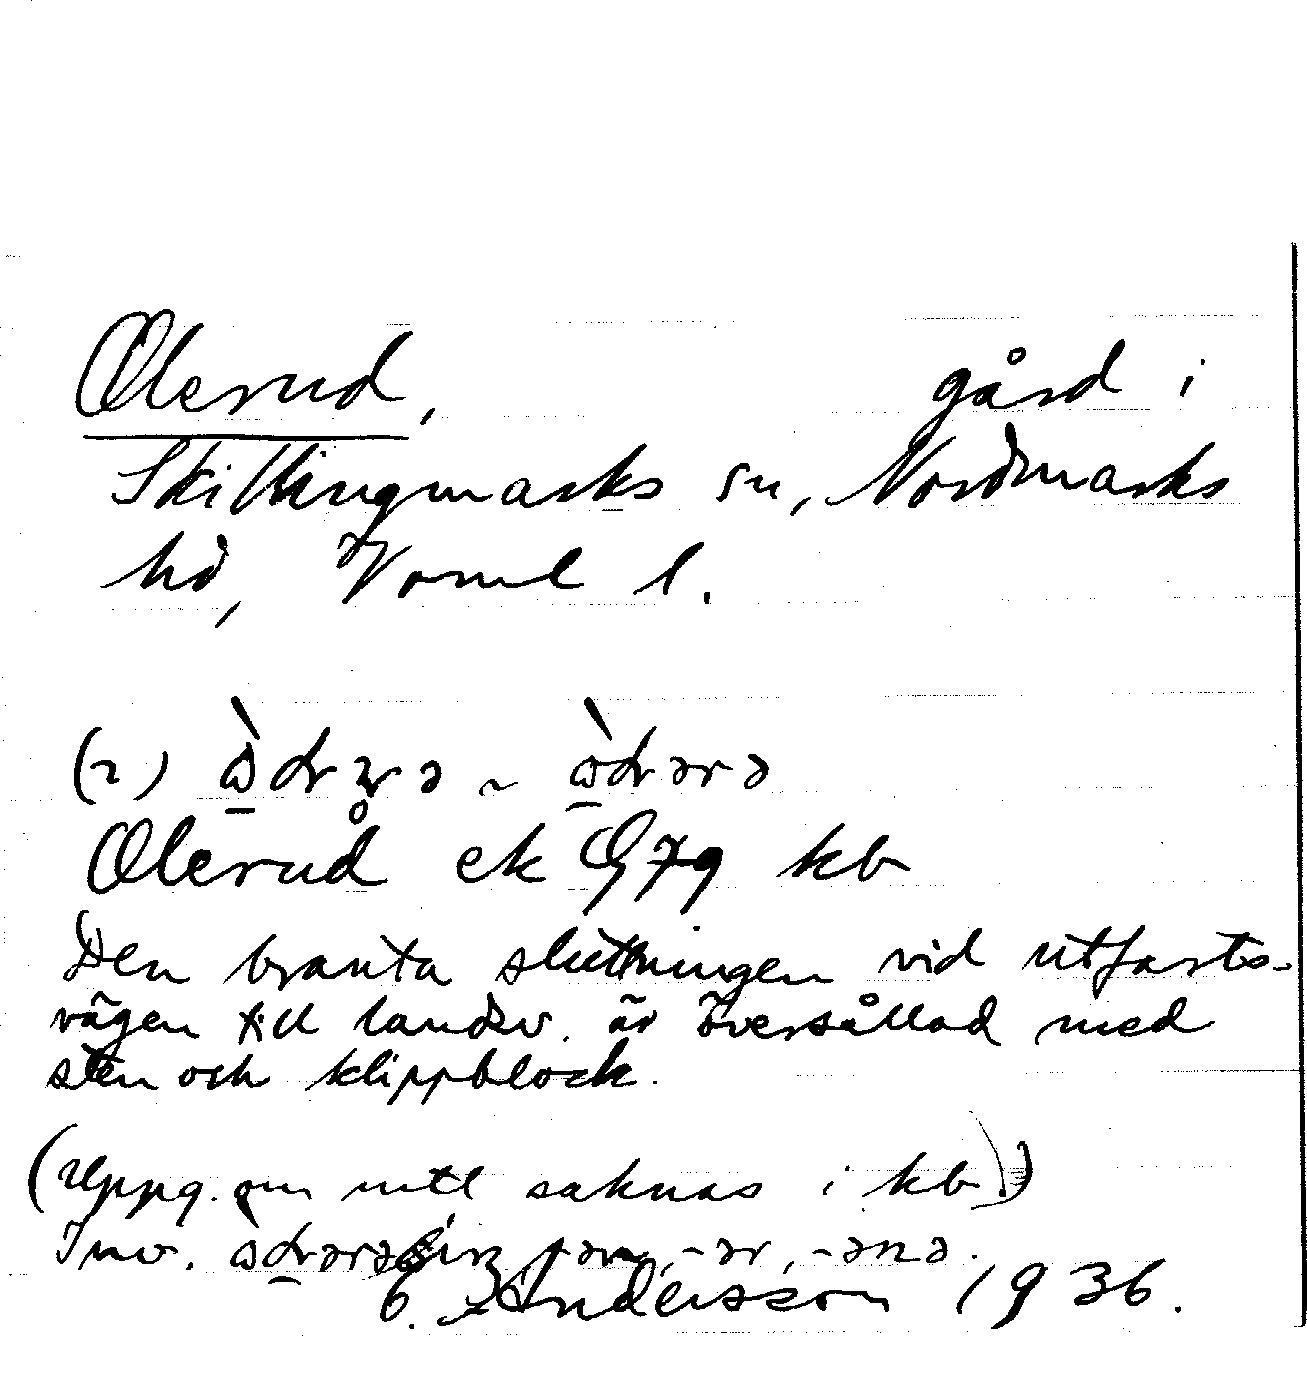 Olerud, gård i
Skillingmarks sn, Nordmarks
hd, Värml l.
(2)
Olerud ek G79 kb
Den branta sluttningen vid utfarts-
vägen till landsv. är översållad med
sten och klippblock.
(Uppg. om mtl saknas i kb.)
Inv. -ər, -ənə.
Andersson 1936.